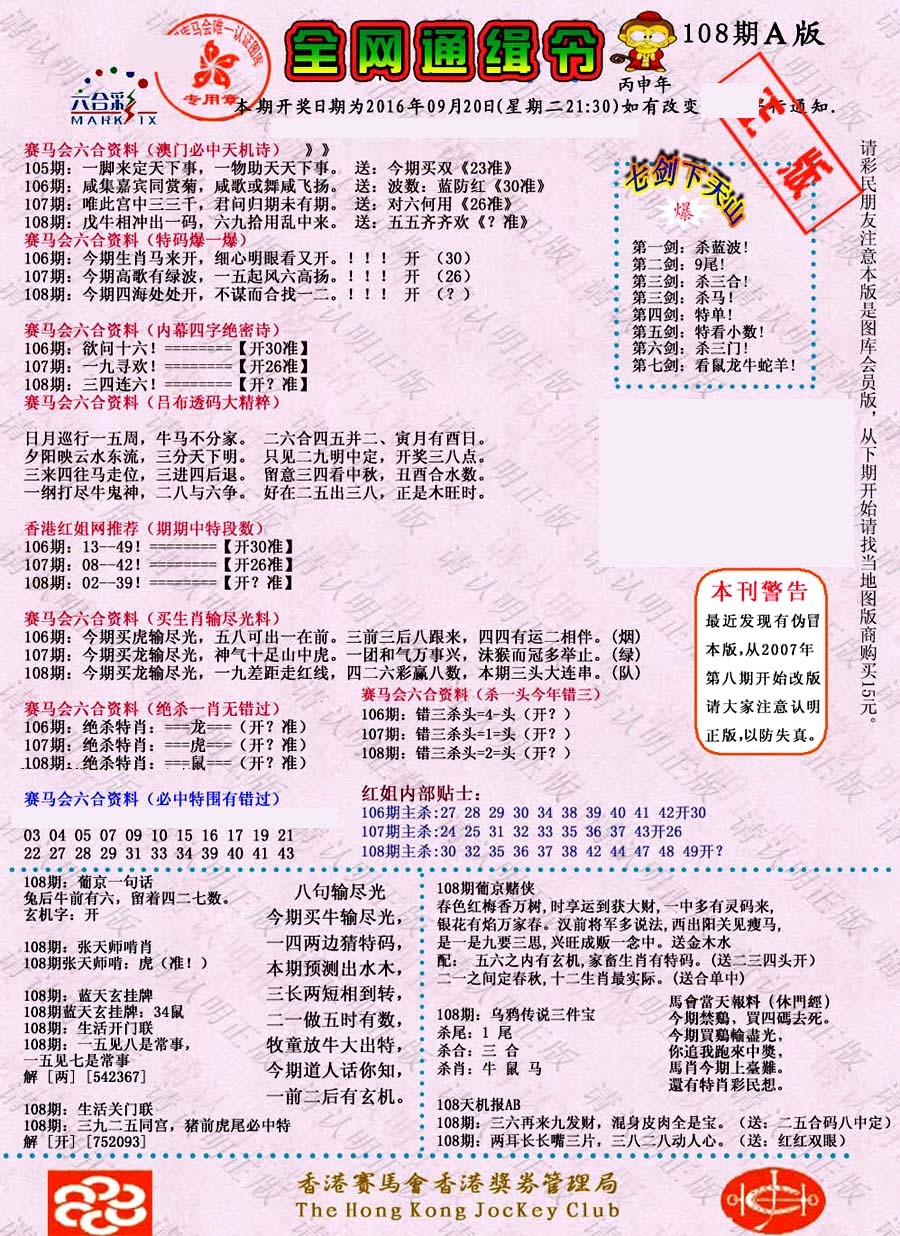 全网通缉令
108期A版
丙申年
六合彩
MARK SIX
专用章
本期开奖日期为2016年09月20日(星期二21:30)如有改变 通知.
赛马会六合资料（澳门必中天机诗） 》》
105期: 一脚来定天下事，一物助天天下事。 送: 今期买双《23准》
106期: 咸集嘉宾同赏菊，咸歌或舞咸飞扬。 送: 波数: 蓝防红《30准》
107期: 唯此宫中三三千，君问归期未有期。 送: 对六何用《26准》
108期: 戊牛相冲出一码，六九拾用乱中来。 送: 五五齐齐欢《？准》
赛马会六合资料（特码爆一爆）
106期: 今期生肖马来开，细心明眼看又开。！！！ 开 （30）
107期: 今期高歌有绿波，一五起风六高扬。！！！ 开 （26）
108期: 今期四海处处开，不谋而合找一二。！！！ 开 （？）
赛马会六合资料（内幕四字绝密诗）
106期: 欲问十六！========【开30准】
107期: 一九寻欢！========【开26准】
108期: 三四连六！========【开？准】
赛马会六合资料（吕布透码大精粹）
日月巡行一五周，牛马不分家。 二六合四五并二、寅月有酉日。
夕阳映云水东流，三分天下明。 只见二九明中定，开奖三八点。
三来四往马走位，三进四后退。 留意三四看中秋，丑酉合水数。
一纲打尽牛鬼神，二八与六争。 好在二五出三八，正是木旺时。
香港红姐网推荐（期期中特段数）
106期: 13--49！========【开30准】
107期: 08--42！========【开26准】
108期: 02--39！========【开？准】
赛马会六合资料（买生肖输尽光料）
106期: 今期买虎输尽光，五八可出一在前。三前三后八跟来，四四有运二相伴。(烟)
107期: 今期买龙输尽光，神气十足山中虎。一团和气万事兴，沫猴而冠多举止。(绿)
108期: 今期买龙输尽光，一九差距走红线，四二六彩赢八数，本期三头大连串。(队)
赛马会六合资料（绝杀一肖无错过）
106期: 绝杀特肖: ===龙===（开？准）
107期: 绝杀特肖: ===虎===（开？准）
108期: 绝杀特肖: ===鼠===（开？准）
赛马会六合资料（杀一头今年错三）
106期: 错三杀头=4-头（开？）
107期: 错三杀头=1=头（开？）
108期: 错三杀头=2=头（开？）
赛马会六合资料（必中特围有错过）
03 04 05 07 09 10 15 16 17 19 21
22 27 28 29 31 33 34 39 40 41 43
红姐内部贴士:
106期主杀:27 28 29 30 34 38 39 40 41 42开30
107期主杀:24 25 31 32 33 35 36 37 43开26
108期主杀:30 32 35 36 37 38 42 44 47 48 49开？
七剑下天山
爆
第一剑: 杀蓝波!
第二剑: 9尾!
第三剑: 杀三合!
第三剑: 杀马!
第四剑: 特单!
第五剑: 特看小数!
第六剑: 杀三门!
第七剑: 看鼠龙牛蛇羊!
版
请彩民朋友注意本版是图库会员版，从下期开始请找当地图版商购买15元。
本刊警告
最近发现有伪冒
本版,从2007年
第八期开始改版
请大家注意认明
正版,以防失真。
108期: 葡京一句话
兔后牛前有六，留着四二七数。
玄机字: 开
108期: 张天师啃肖
108期张天师啃: 虎（准！）
108期: 蓝天玄挂牌
108期蓝天玄挂牌: 34鼠
108期: 生活开门联
108期: 一五见八是常事，
一五见七是常事
解［两］[542367]
108期: 生活关门联
108期: 三九二五同宫，猪前虎尾必中特
解［开］[752093]
八句输尽光
今期买牛输尽光，
一四两边猜特码，
本期预测出水木，
三长两短相到转，
二一做五时有数，
牧童放牛大出特，
今期道人话你知，
一前二后有玄机。
108期葡京赌侠
春色红梅香万树,时享运到获大财,一中多有灵码来,
银花有焰万家春。汉前将军多说法,西出阳关见瘦马,
是一是九要三思,兴旺成贩一念中。送金木水
配: 五六之内有玄机,家畜生肖有特码。(送二三四头开)
二一之间定春秋,十二生肖最实际。(送合单中)
108期: 乌鸦传说三件宝
杀尾: 1 尾
杀合: 三 合
杀肖: 牛 鼠 马
馬會當天報料（休門經）
今期禁鷄、買四碼去死。
今期買鷄輸盡光，
你追我跑來中獎，
馬肖今期上臺難。
還有特肖彩民想。
108天机报AB
108期: 三六再来九发财，混身皮肉全是宝。（送: 二五合码八中定）
108期: 两耳长长嘴三片，三八二八动人心。（送: 红红双眼）
香港賽馬會香港獎券管理局
The Hong Kong JocKey Club